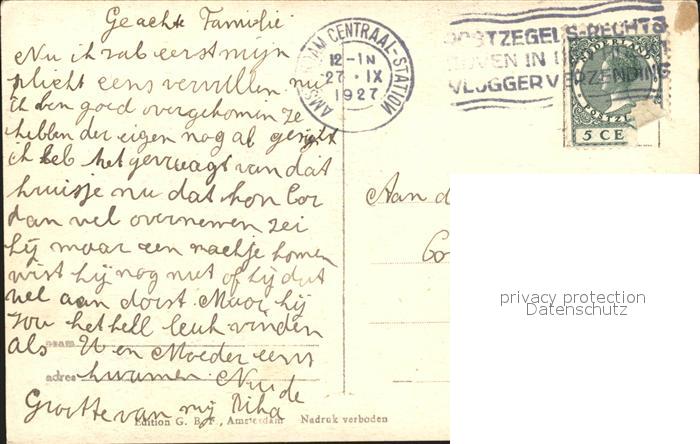 Geachte Familie
Nu ik zal eerst mijn
plicht eens vervullen nu
ik ben goed overgekomen ze
hebben der eigen nog al
ik heb het gevraagt van dat
huisje nu dat kon Cor
dan wel overnemen zei
hij maar een nachje komen
wist hij nog niet of hij dat
wel aan dorst. Maar hij
zou het heel leuk vinden
Als U en Moeder eens
naam
kwamen. Nu de
adres
Groette van mij Rika
AMSTERDAM CENTRAAL-STATION
12-1N
27 · IX
1927
POSTZEGELS RECHTS
BOVEN IN
VLUGGER VERZENDING
NEDERLAND
POSTZ
5 CE
Aan d
Co
privacy protection
Datenschutz
Edition G. B. F., Amsterdam Nadruk verboden